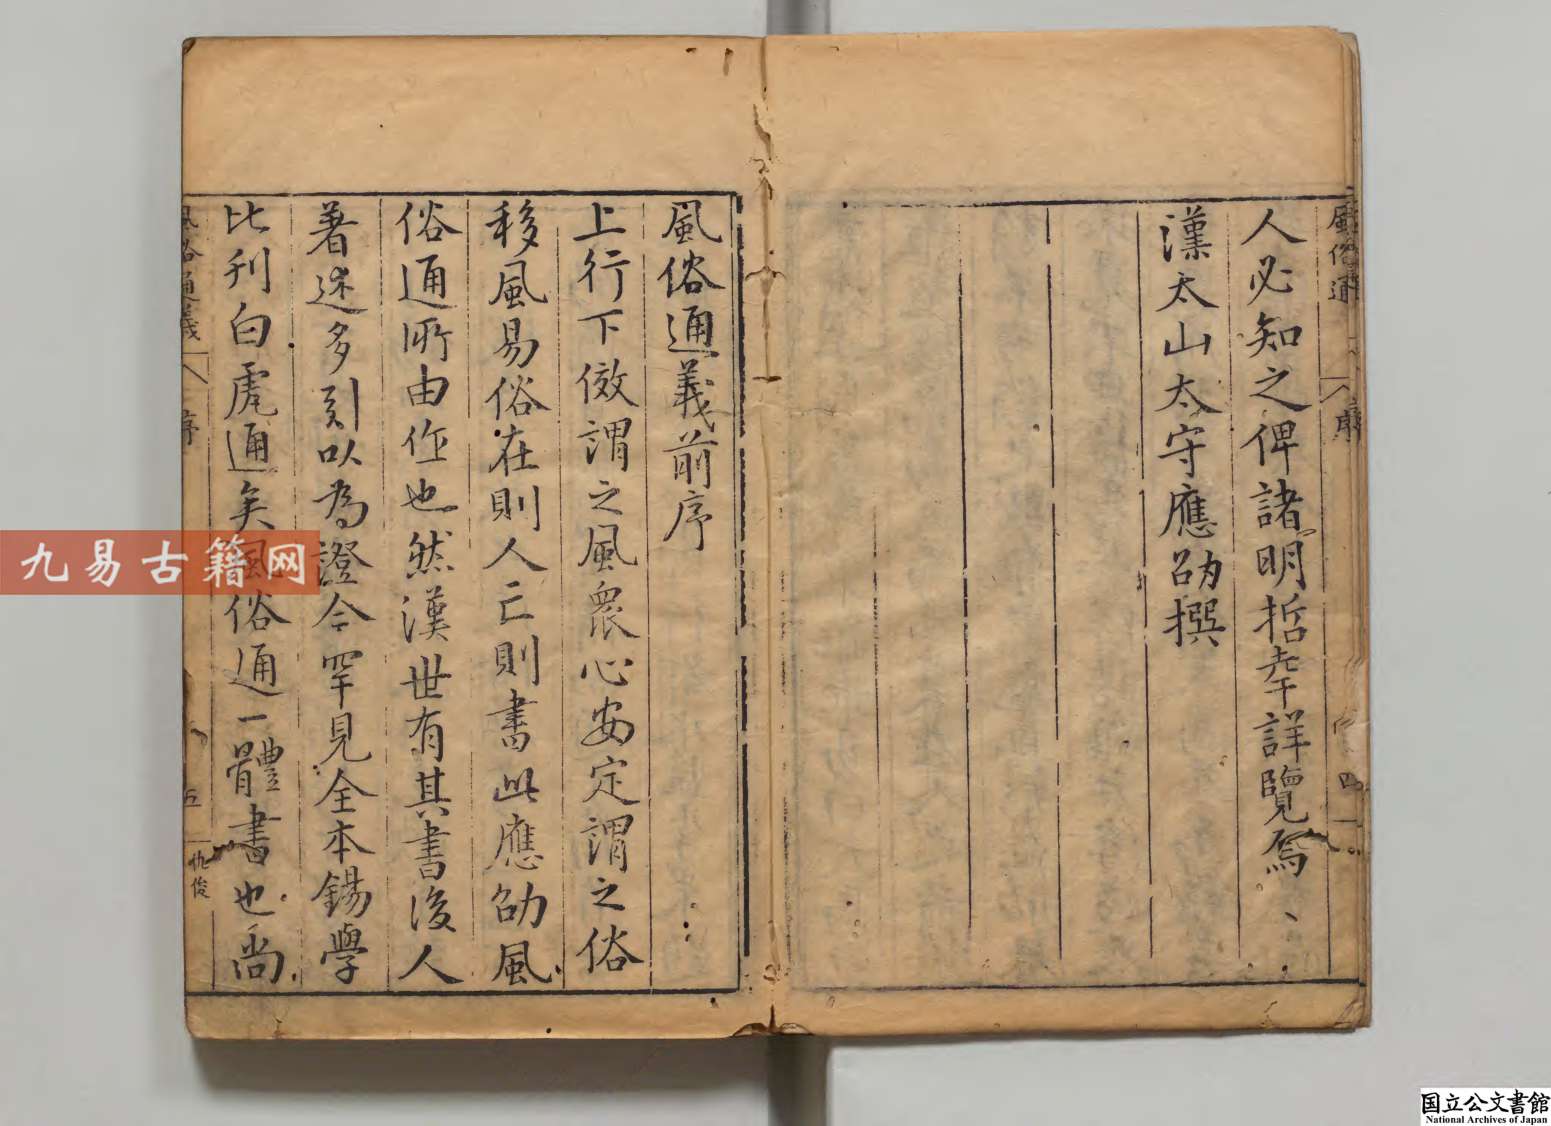 風俗通
序
四
人必知之俾諸明哲幸詳覽焉
漢太山太守應劭撰
風俗通義前序
上行下倣謂之風衆心安定謂之俗
移風易俗在則人亡則書此應劭風
俗通所由作也然漢世有其書後人
著述多引以為證今罕見全本錫學
比刊白虎通矣風俗通一體書也尚
風俗通義
序
五
仇俊
九易古籍网
国立公文書館
National Archives of Japan